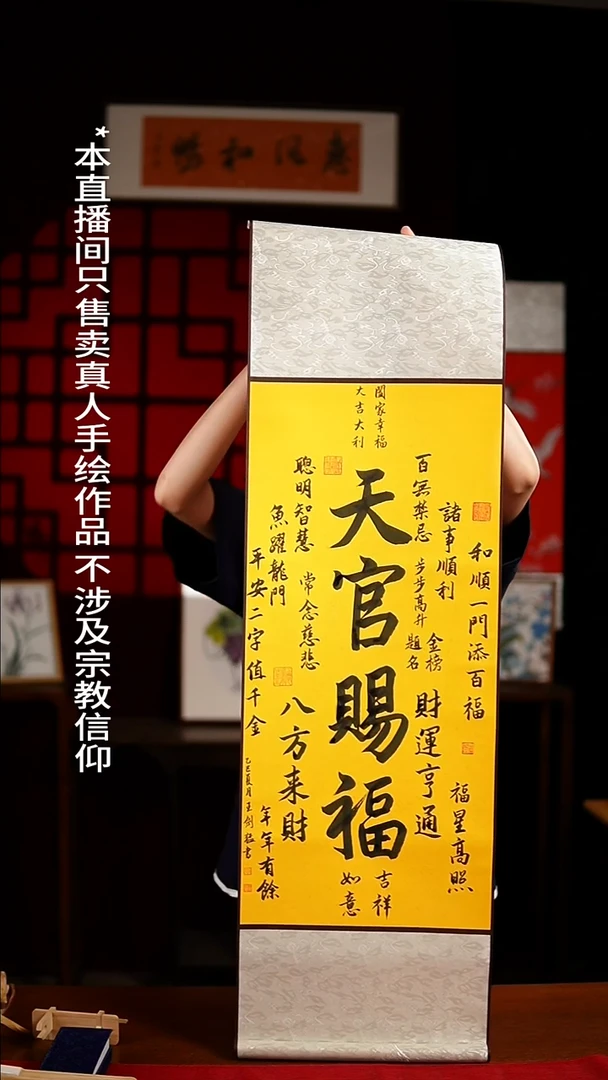 *本直播间只售卖真人手绘作品 不涉及宗教信仰
闔家幸福
大吉大利
和順一門添百福
諸事順利
福星高照
百無禁忌
步步高升
金榜
題名
財運亨通
天官賜福
吉祥
如意
聰明智慧
常念慈悲
魚躍龍門
八方来財
平安二字值千金
年年有餘